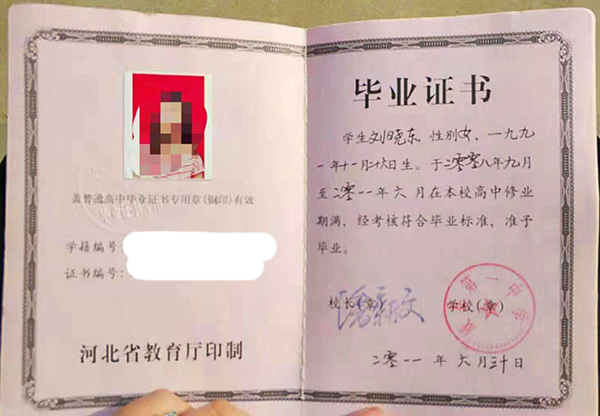 盖普通高中毕业证书专用章(钢印)有效
学籍编号:
证书编号:
河北省教育厅印制
毕业证书
学生刘晓东 性别女，一九九
一年十一月廿六日生。于二零零八年九月
至二零一一年六月在本校高中修业
期满，经考核符合毕业标准，准予
毕业。
校长(章) 学校(章)
第一中学
二零一一年六月三十日